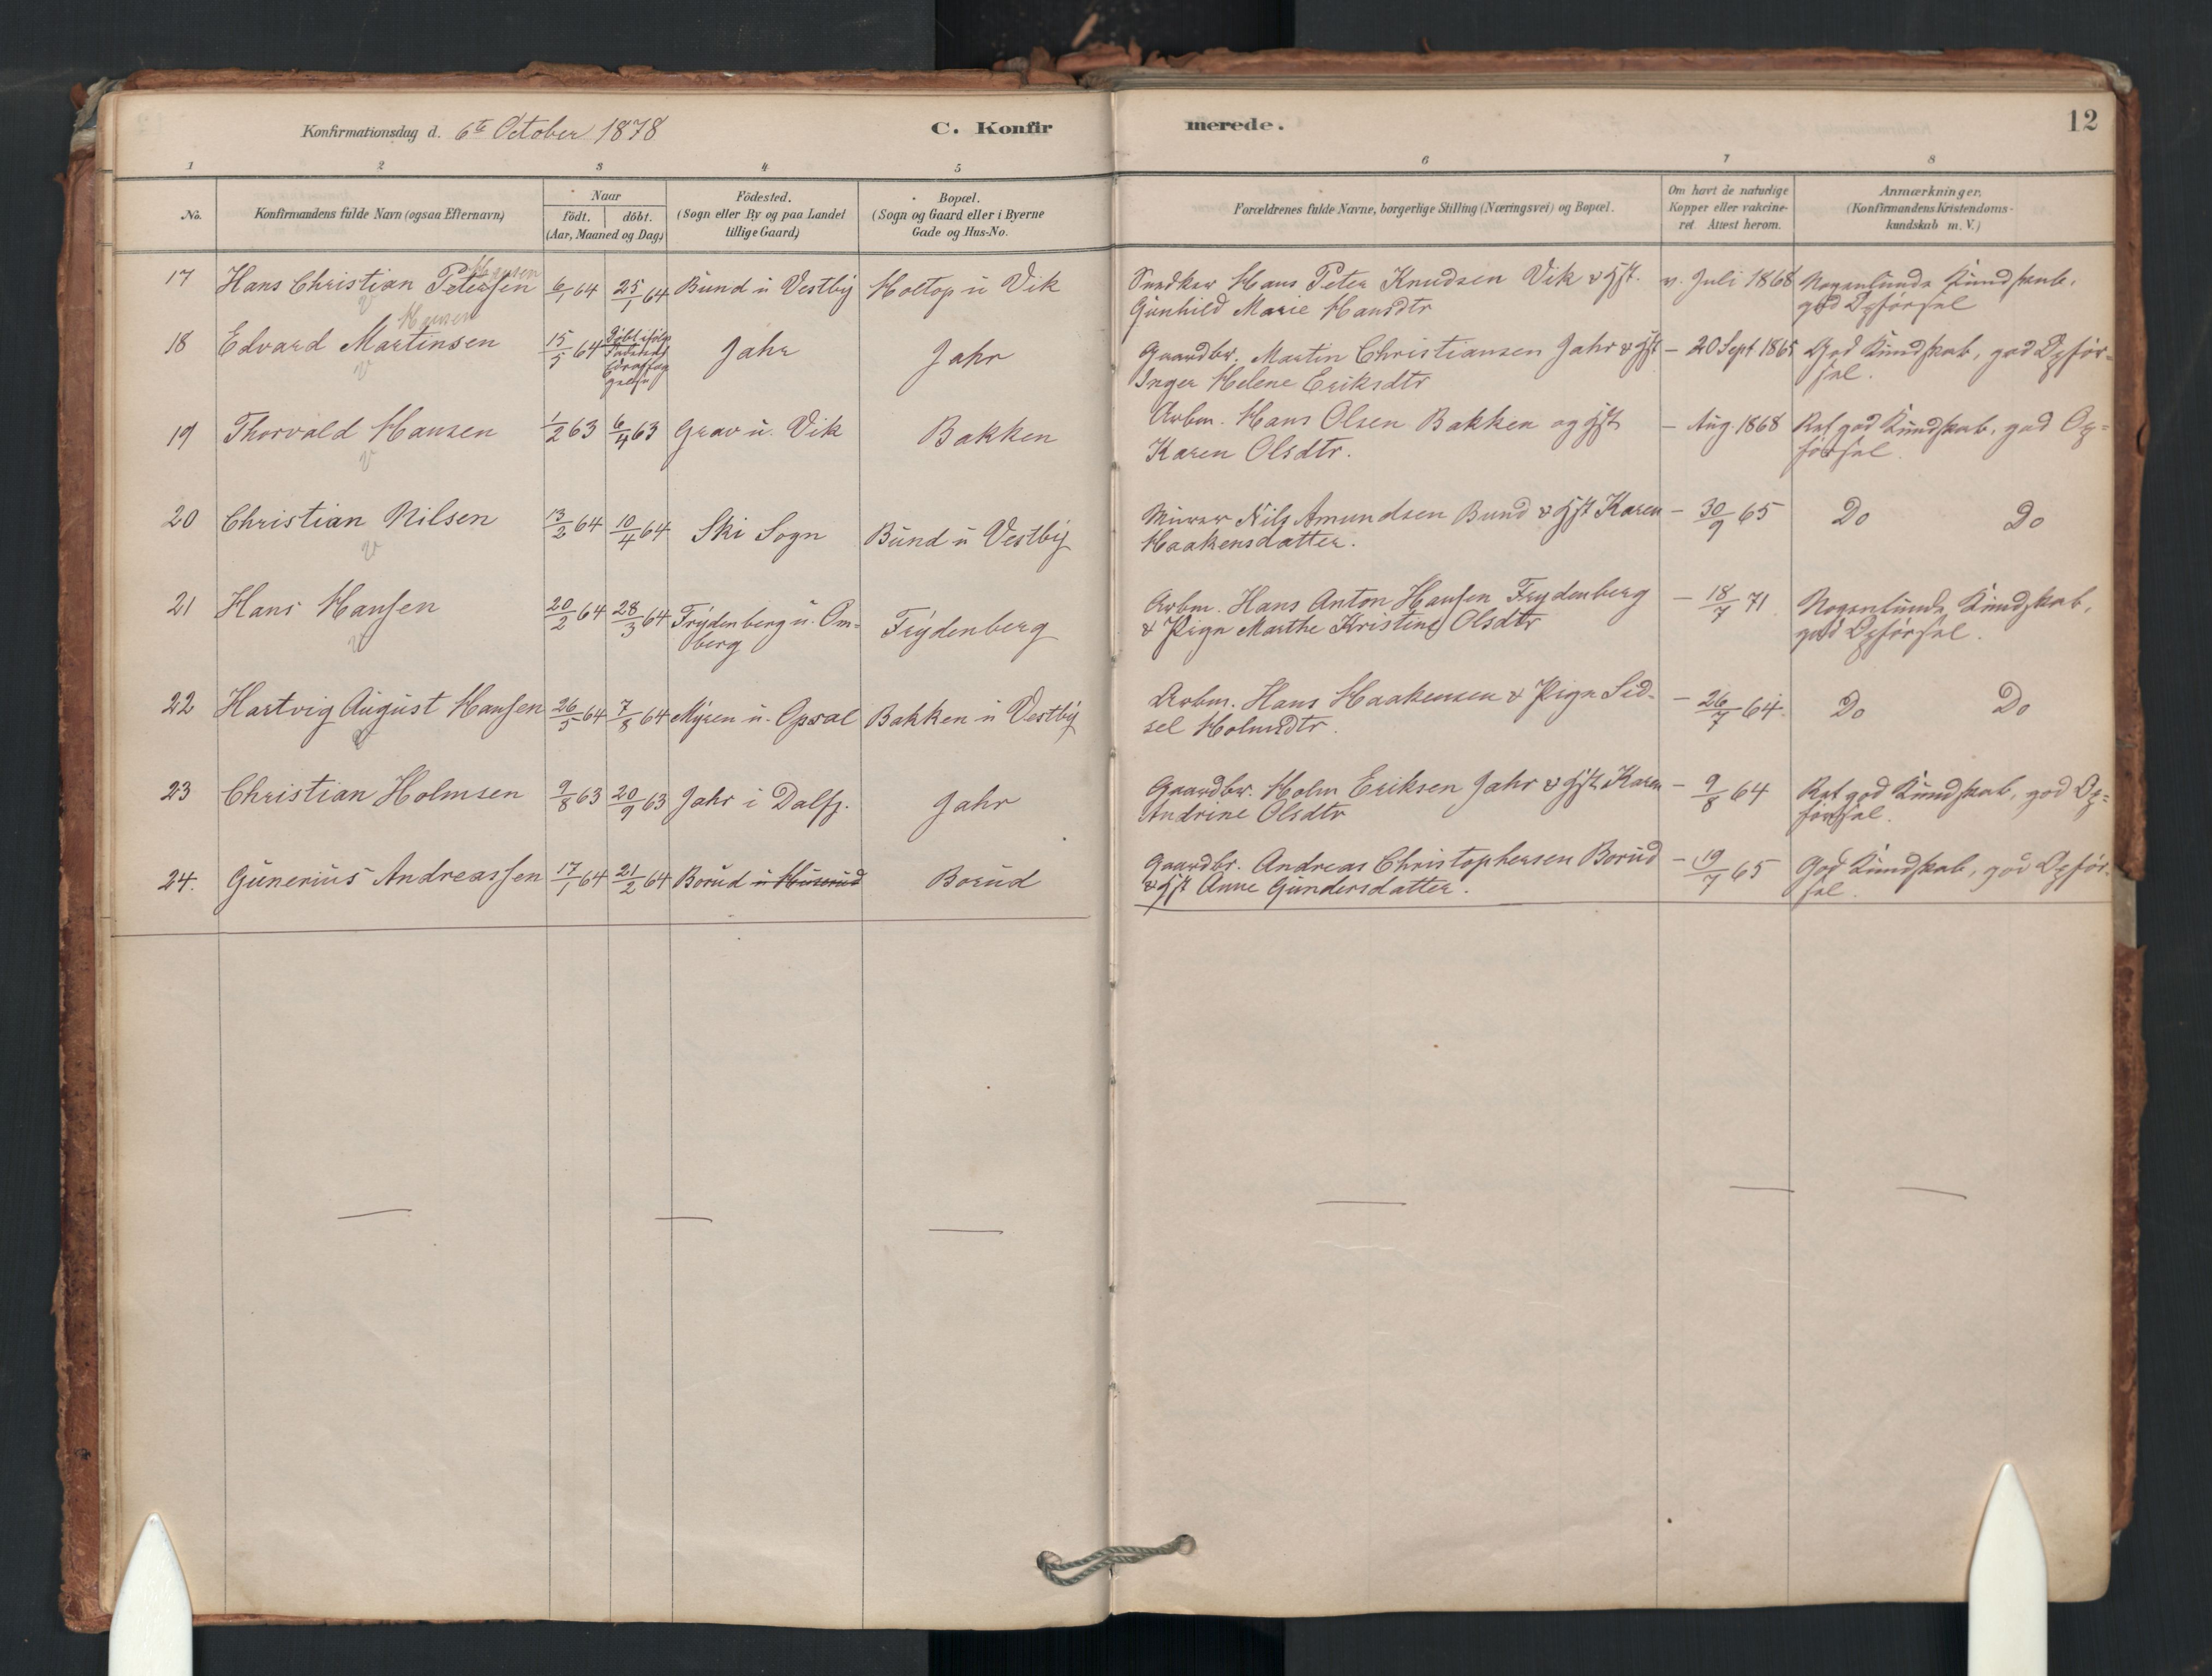 Konfirmationsdag d. 6te October 1878
C. Konfir merede.
12
1 2 3 4 5 6 7 8
No.
Konfirmandens fulde Navn (ogsaa Efternavn)
Naar
födt. döbt.
(Aar, Maaned og Dag.)
Födested.
(Sogn eller By og paa Landet
tillige Gaard)
Bopæl.
(Sogn og Gaard eller i Byerne
Gade og Hus-No.
Forældrenes fulde Navne, borgerlige Stilling (Næringsvei) og Bopæl.
Om havt de naturlige
Kopper eller vakcine-
ret. Attest herom.
Anmærkninger.
(Konfirmandens Kristendoms-
kundskab m. V.)
Hansen
17 Hans Christian Petersen 6/1 64 25/1 64 Bund u Vestby Holtop u Vik Snedker Hans Peter Knudsen Vik & Hst. v. Juli 1868 Nogenlunde Kundskab,
Gunhild Marie Hansdtr god Opförsel
Hansen
18 Edvard Martinsen 15/5 64 Döbt ifölge Jahr Jahr Gaardbr. Martin Christiansen Jahr & Hst – 20 Sept 1865 God Kundskab, god Opför-
Inger Helene Eriksdtr sel.
19 Thorvald Hansen 1/2 63 6/4 63 Grav u. Vik Bakken Arbm. Hans Olsen Bakken og Hst – Aug. 1868 Ret god Kundskab, god Op=
Karen Olsdtr. försel.
20 Christian Nilsen 13/2 64 10/4 64 Ski Sogn Bund u Vestby Murer Nils Amundsen Bund & Hst Karen – 30/9 65 Do Do
Haakensdatter.
21 Hans Hansen 20/2 64 28/3 64 Frydenberg u. Om- Frydenberg Arbm. Hans Anton Hansen Frydenberg – 18/7 71 Nogenlunde Kundskab,
berg & Pige Marthe Kristine Olsdtr god Opförsel.
22 Hartvig August Hansen 26/5 64 7/8 64 Myren u. Opsal Bakken u Vestby Arbm. Hans Haakensen & Pige Sid- – 26/7 64. Do Do
sel Holmsdtr.
23 Christian Holmsen 9/8 63 20/9 63 Jahr i Dalss. Jahr Gaardbr. Holm Eriksen Jahr & Hst. Karen – 9/8 64 Ret god Kundskab, god Op=
Andrine Olsdtr försel.
24. Gunerius Andreassen 17/1 64 21/2 64 Borud u Huserud Borud Gaardbr. Andreas Christophersen Borud – 19/7 65 God Kundskab, god Opför-
& Hst Anne Gundersdatter. sel.